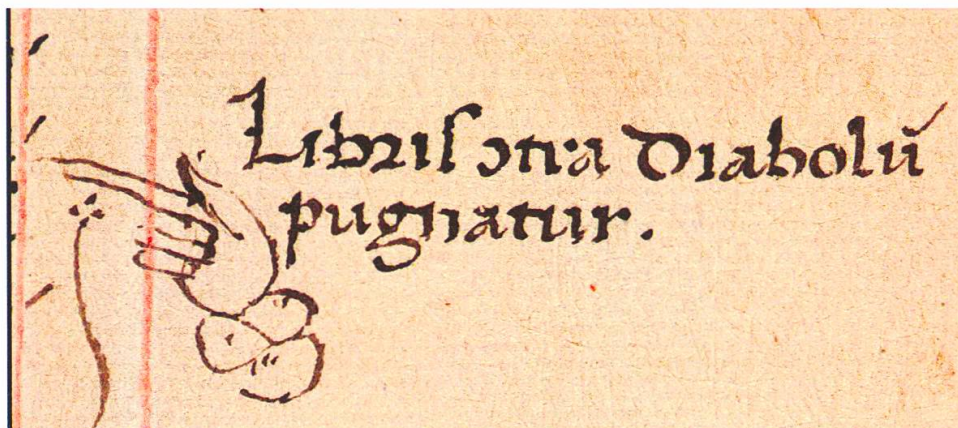 Libris ɔtra Diabolū
pugnatur.